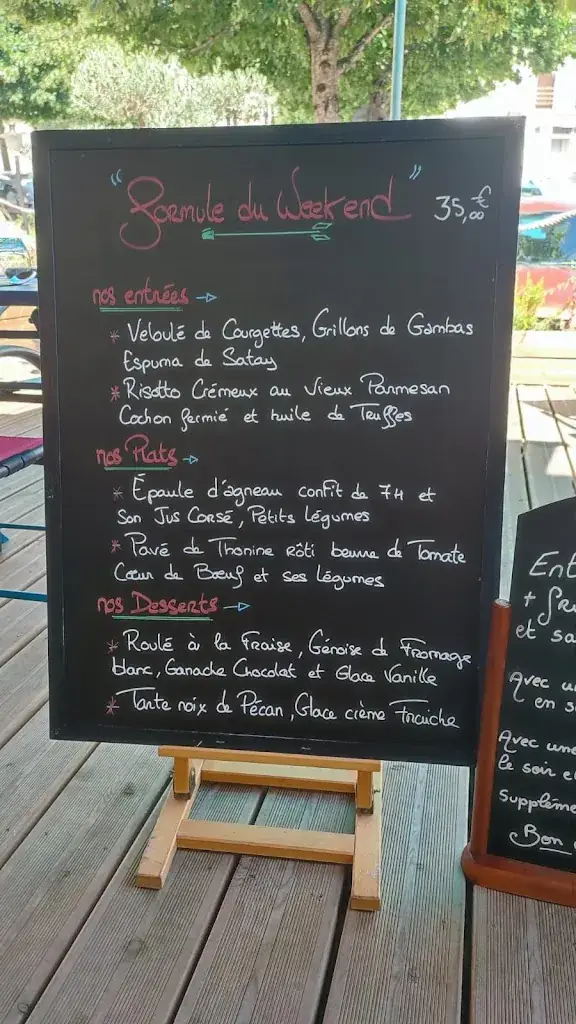 " Formule du Week end " 35,00 €
nos entrées
* Velouté de Courgettes, Grillons de Gambas
Espuma de Satay
* Risotto Crémeux au Vieux Parmesan
Cochon fermié et huile de Truffes
nos Plats
* Épaule d'agneau confit de 7H et
Son Jus Corsé, Petits légumes
* Pavé de Thonine rôti beurre de Tomate
Cœur de Bœuf et ses légumes
nos Desserts
* Roulé à la Fraise, Génoise de Fromage
blanc, Ganache Chocolat et Glace Vanille
* Tarte noix de Pécan, Glace crème Fraiche
Ent
+
et sa
Avec u
en s
Avec une
le soir e
Supplème
Bon